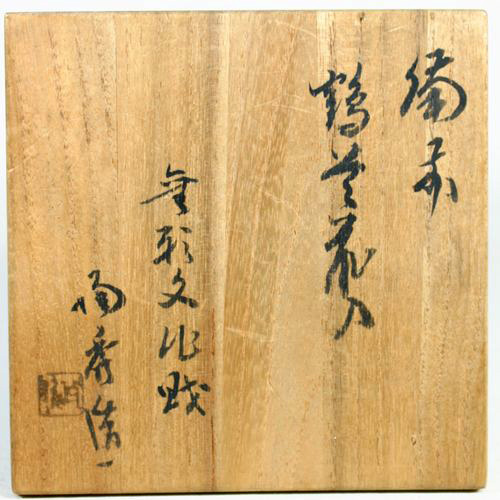 備前
鶴首花入
無形文化財
陶秀造